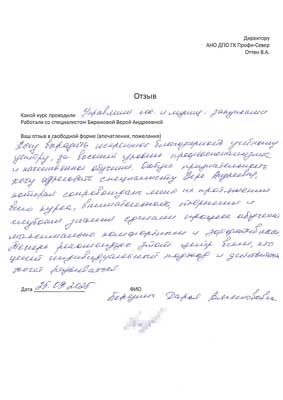 Директору
АНО ДПО ГК Профи-Север
Оттен В.А.
Отзыв
Какой курс проходили Управление гос. и муниц. закупками
Работали со специалистом Бирюковой Верой Андреевной
Ваш отзыв в свободной форме (впечатления, пожелания)
Хочу выразить искреннюю благодарность учебному
центру, за высокий уровень профессионализма
и качественное обучение. Особую признательность
хочу адресовать специалисту Вере Андреевне,
которая сопровождала меня на протяжении
всего курса, внимательность, терпение и
глубокие знания сделали процесс обучения
максимально комфортным и эффективным.
Искренне рекомендую этот центр всем, кто
ценит индивидуальный подход и действительно
хочет развиваться
Дата 25.09.2025 ФИО
Дарья Вячеславовна